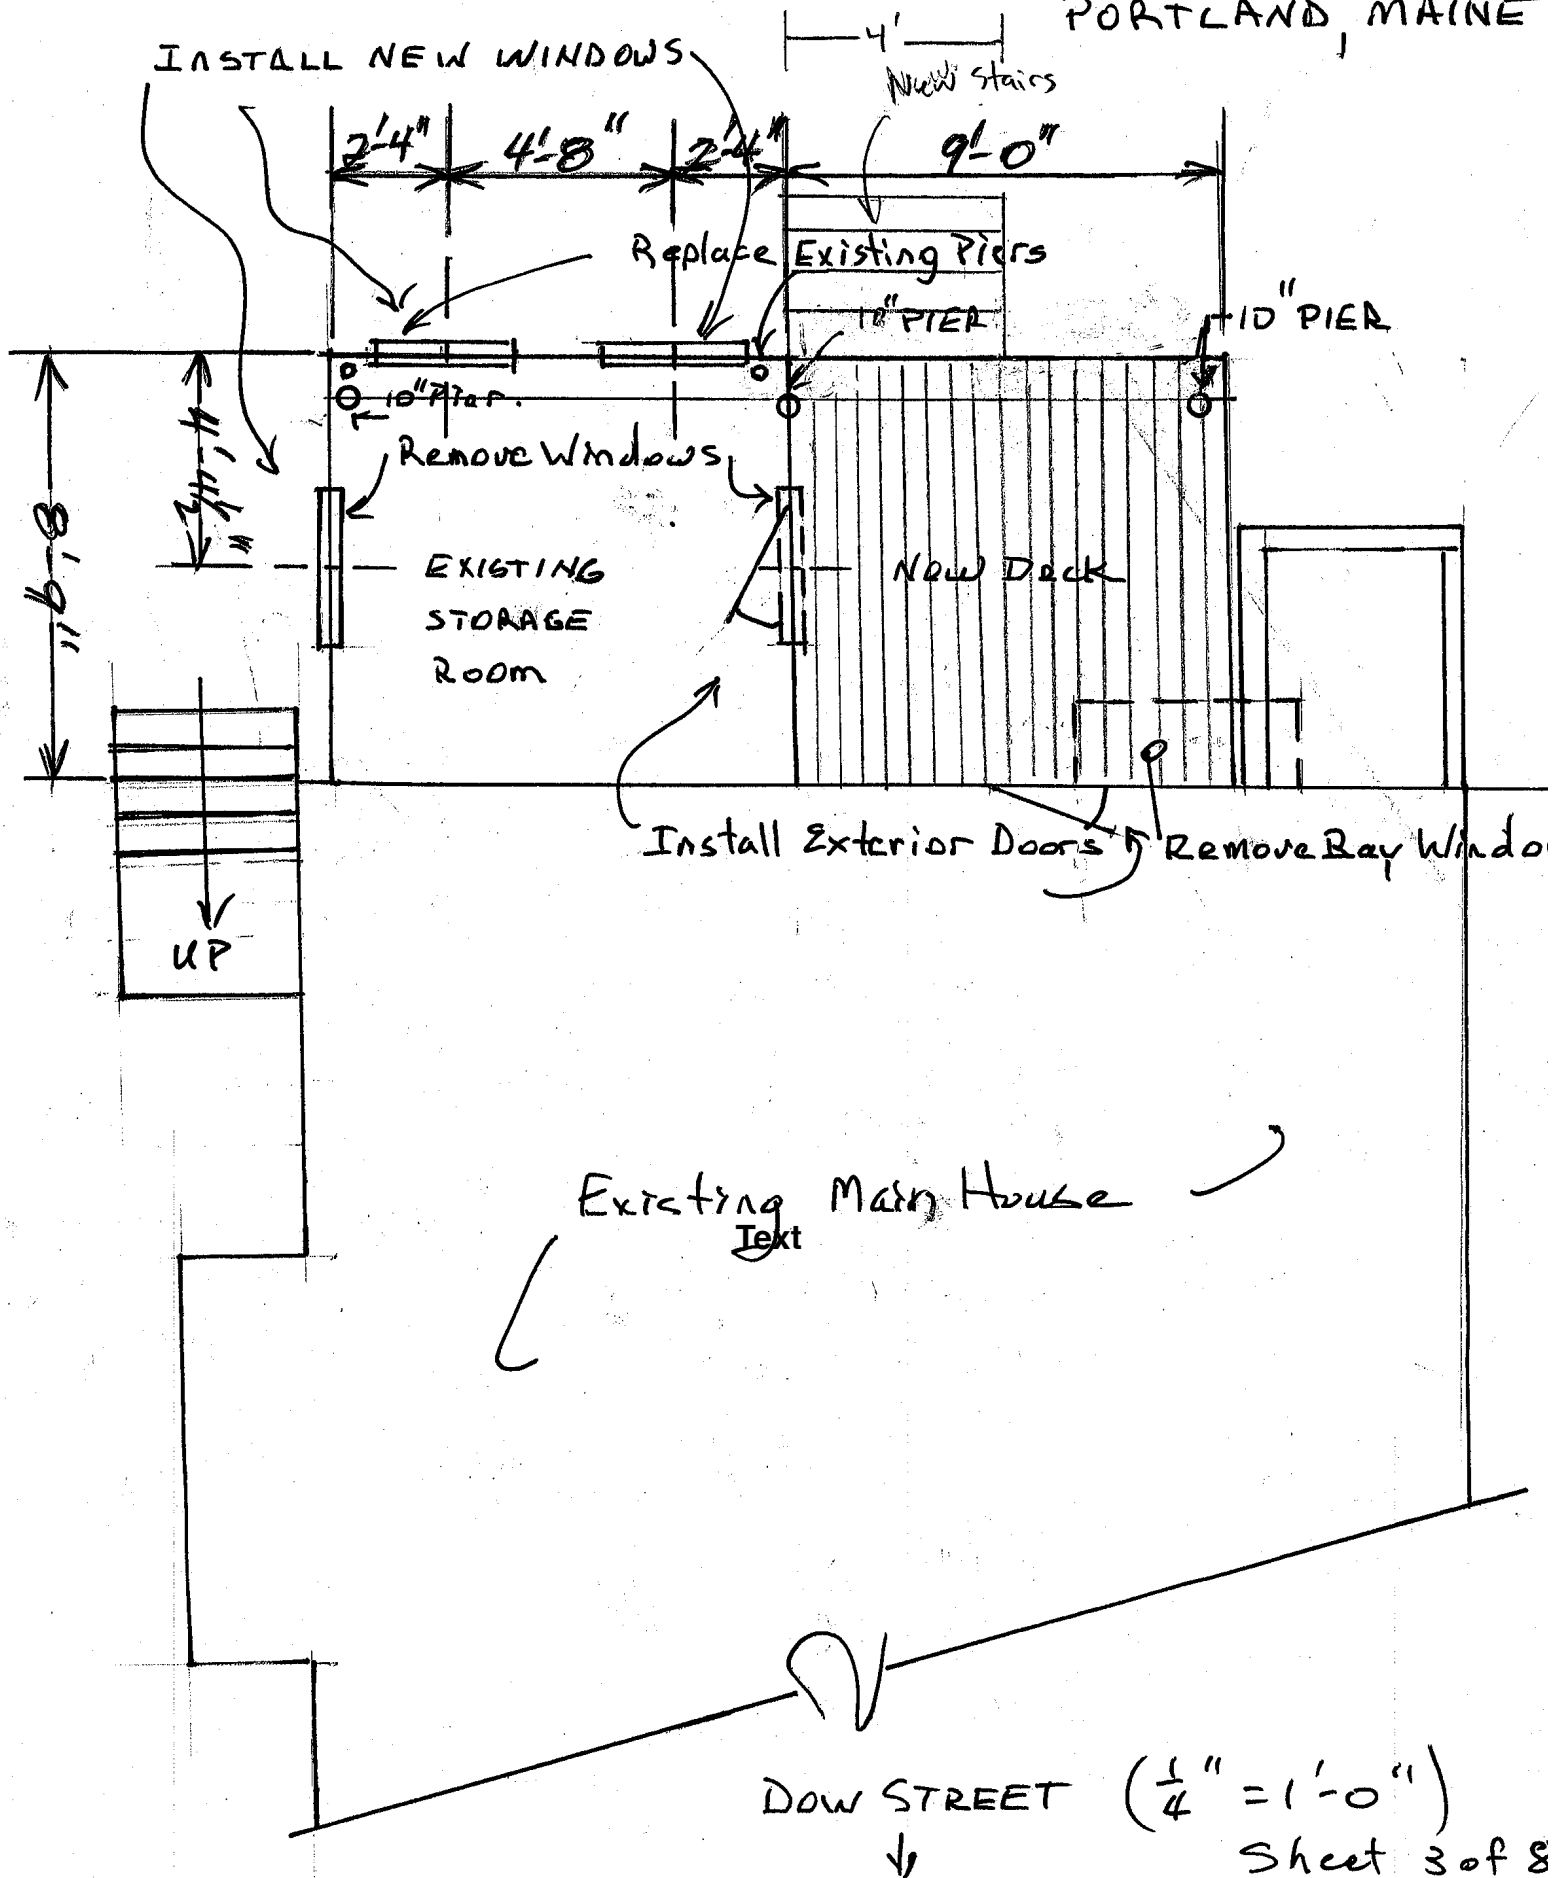 PORTLAND, MAINE
4'
New Stairs
INSTALL NEW WINDOWS
2'-4" 4'-8" 2'-4" 9'-0"
Replace Existing Piers
10" PIER
10" PIER
10" Pier.
Remove Windows
8'-9"
4'-4½"
EXISTING
STORAGE
ROOM
New Deck
Install Exterior Doors
Remove Bay Windo
UP
Existing Main House
Text
DOW STREET (¼" = 1'-0")
Sheet 3 of 8